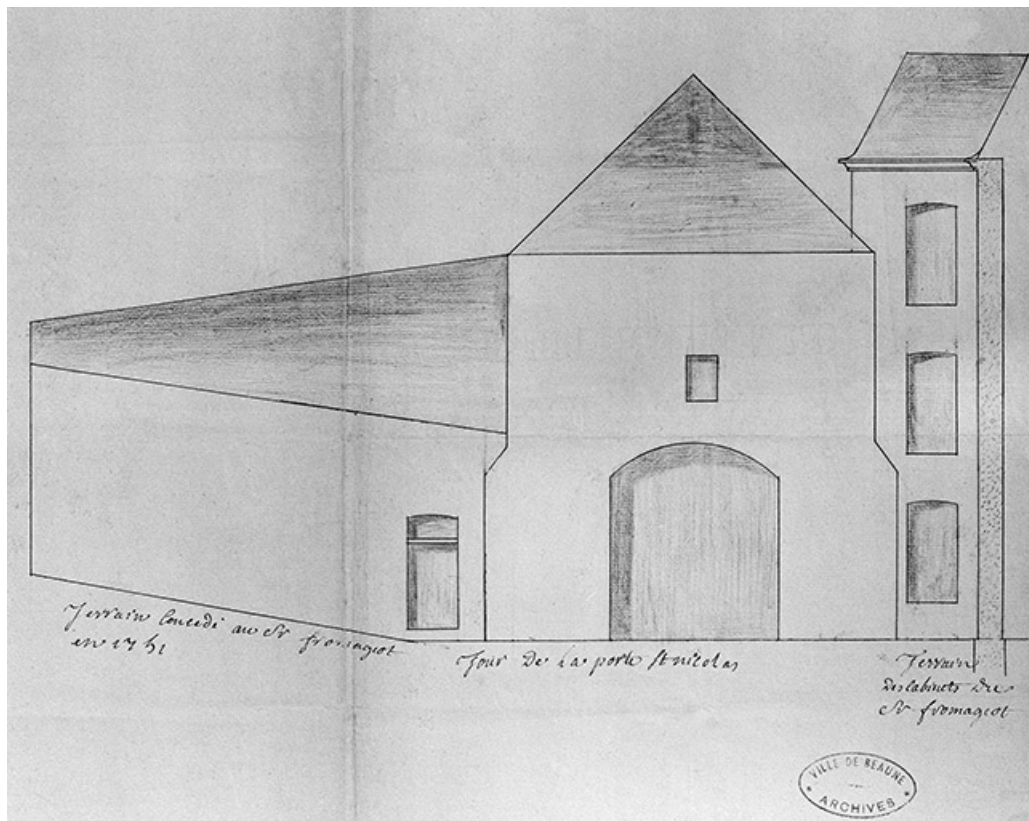 Terrain Concedé au Sr fromageot
en 1751
Tour De La porte St nicolas
Terrain
Des Cabinets Du
Sr fromageot
VILLE DE BEAUNE
ARCHIVES